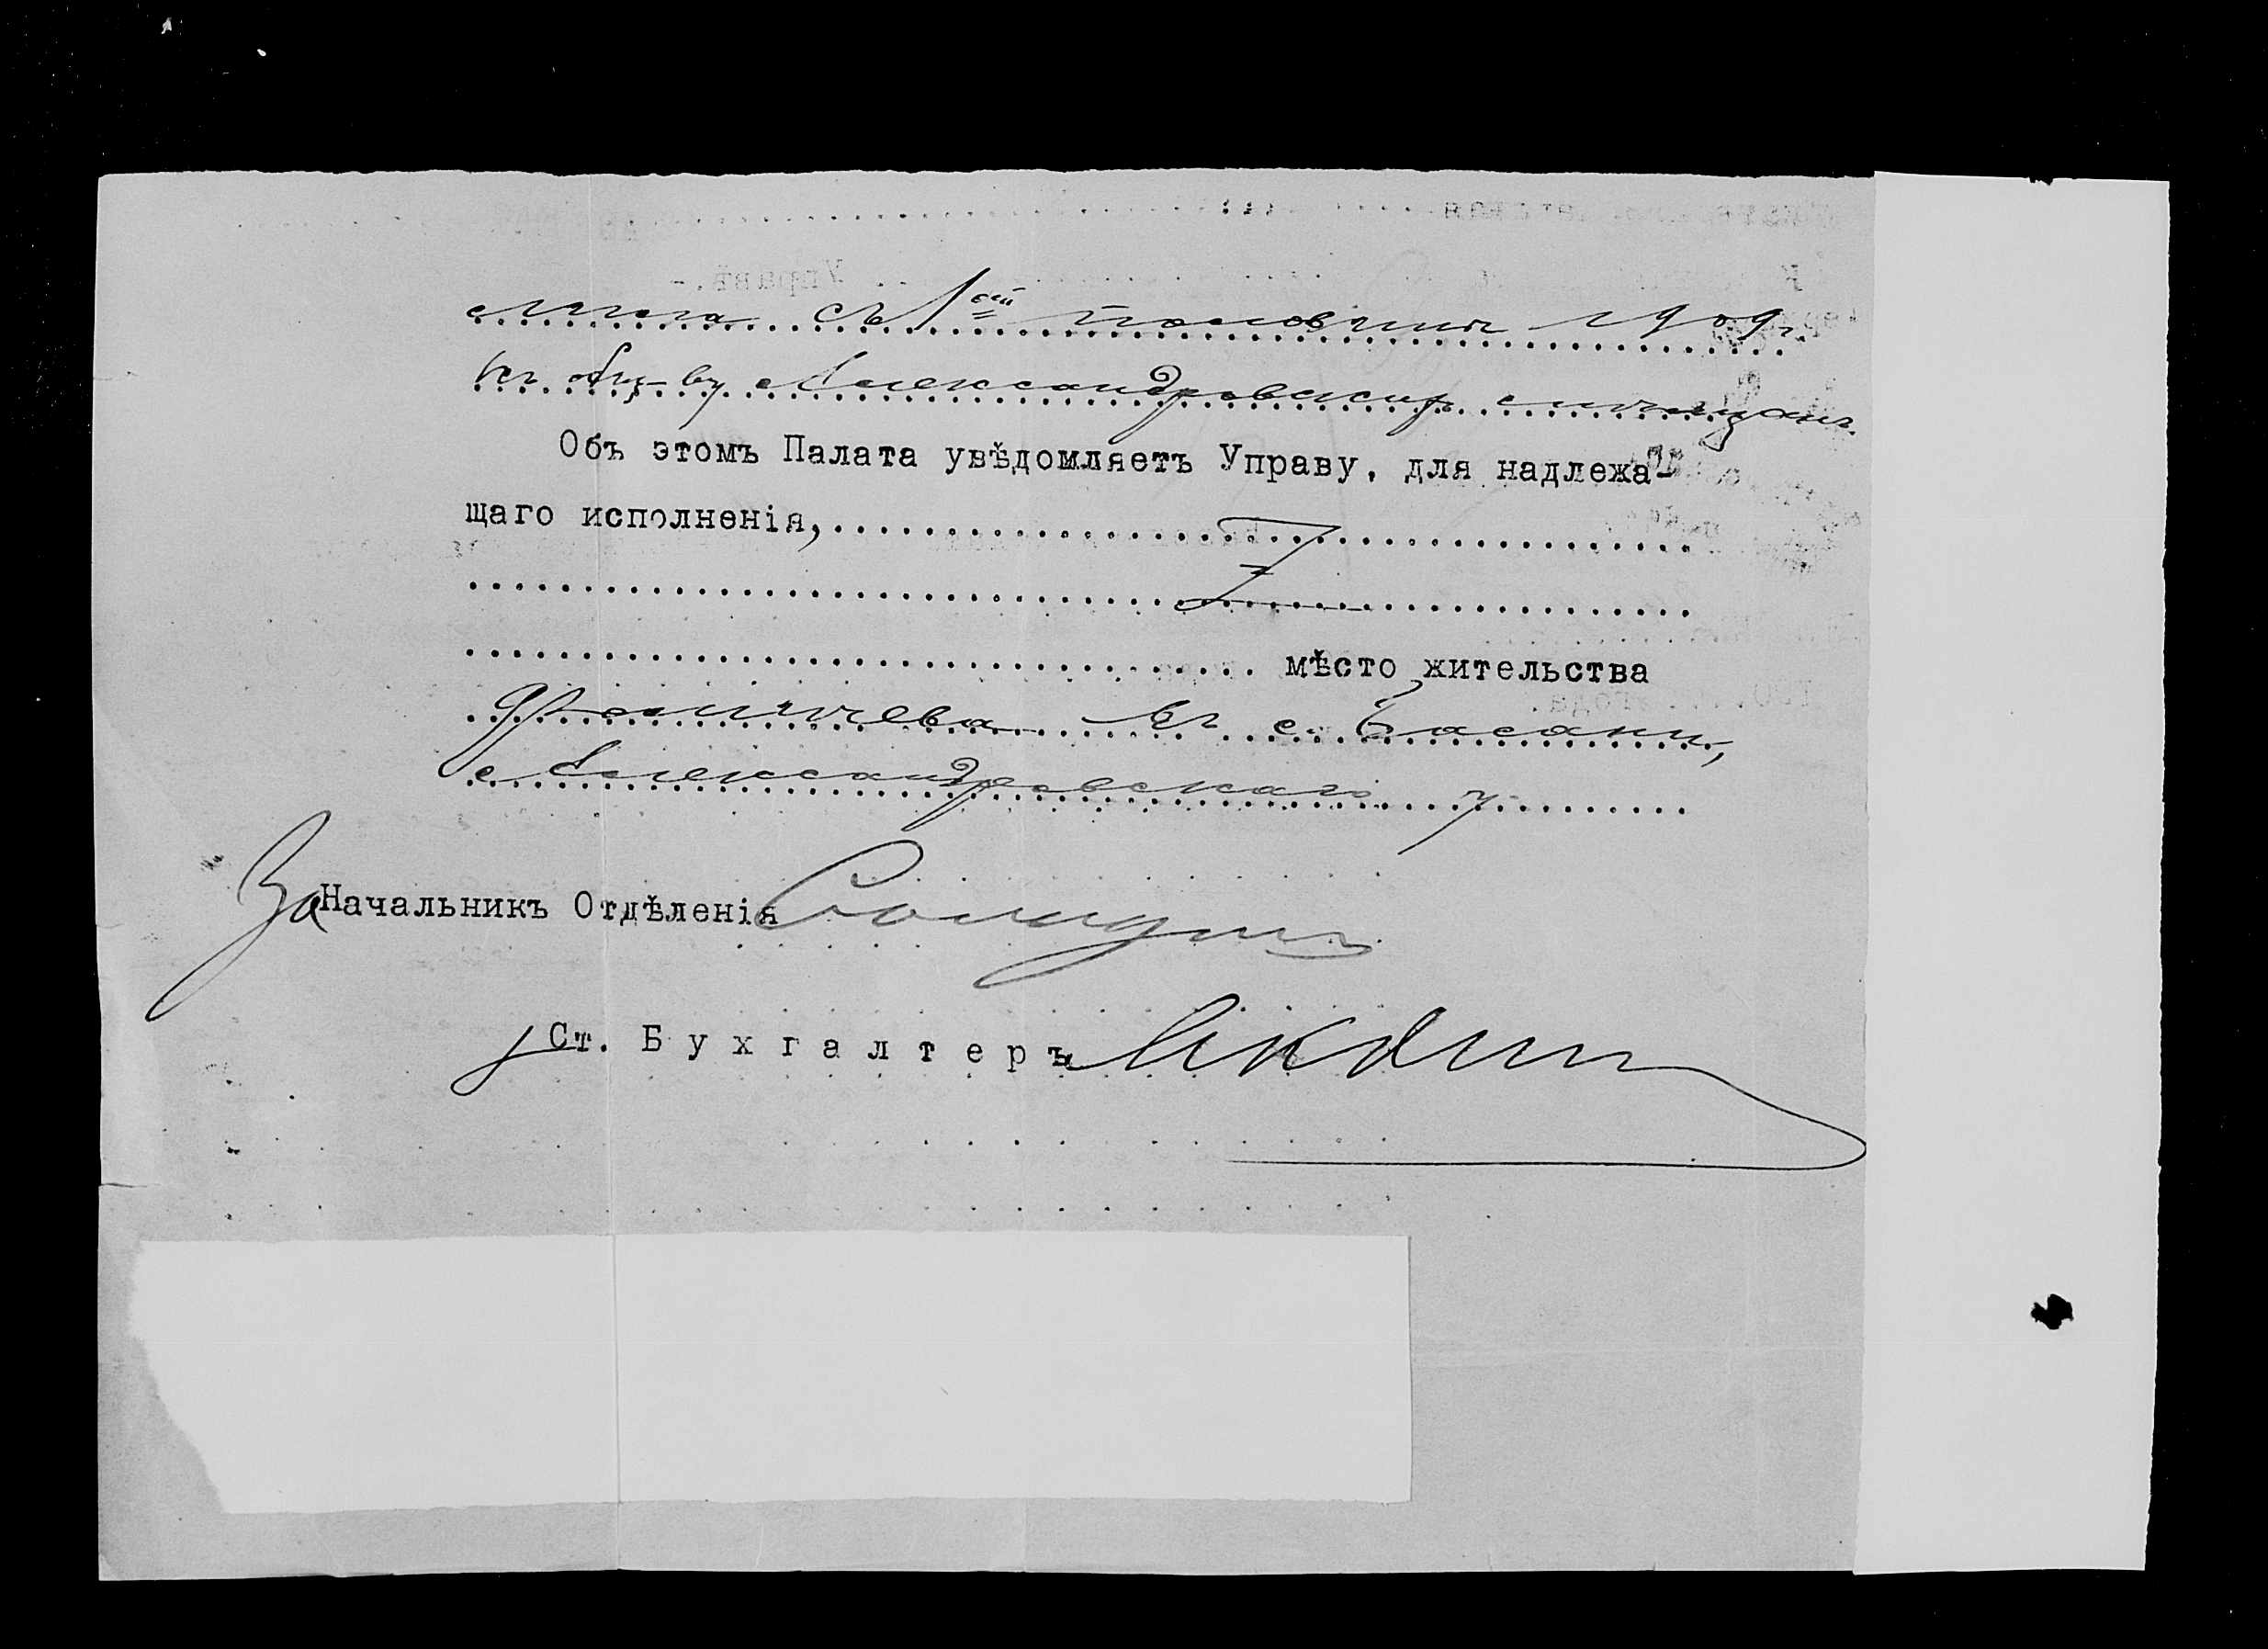 съ 1ой половины 1909 г.
къ общ-ву Александровскихъ мѣщанъ.
Объ этомъ Палата увѣдомляетъ Управу, для надлежа-
щаго исполненія,
мѣсто жительства
Фомичева въ с. Басани,
Александровскаго у.
За Начальникъ Отдѣленія
Ст. Бухгалтеръ